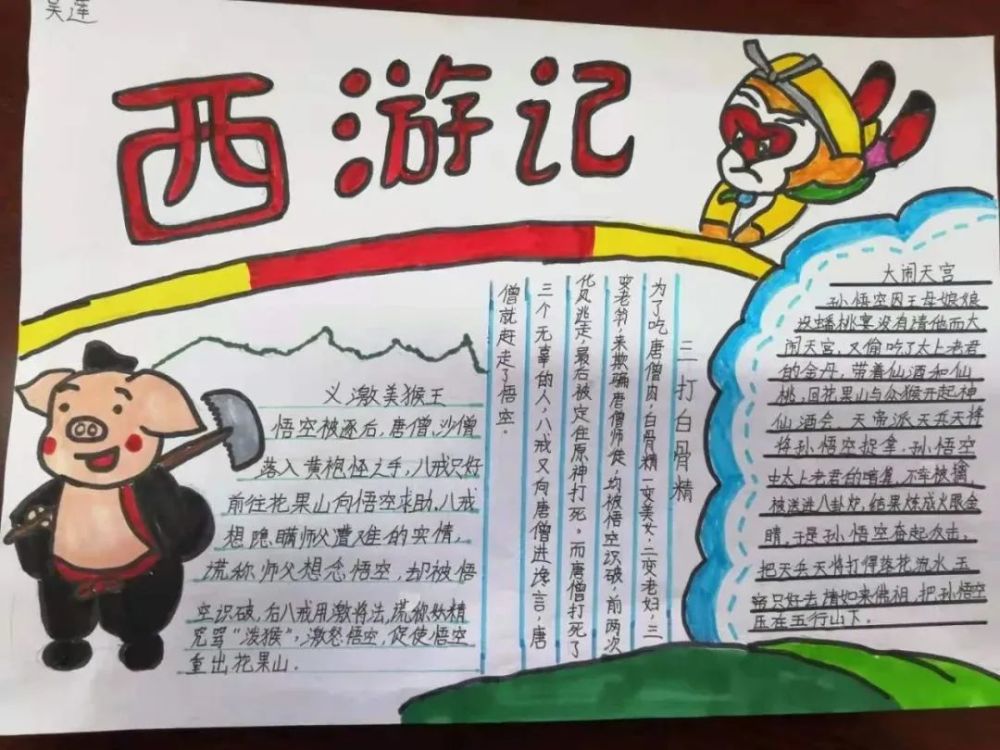 吴莲
西游记
义激美猴王
悟空被逐后，唐僧，沙僧
落入黄袍怪之手，八戒只好
前往花果山向悟空求助，八戒
想隐瞒师父遭难的实情，
谎称师父想念悟空，却被悟
空识破，后八戒用激将法，谎称妖精
咒骂“泼猴”，激怒悟空，促使悟空
重出花果山．
三打白骨精
为了吃唐僧肉，白骨精一变美女，二变老妇，三
变老翁，来欺骗唐僧师徒，均被悟空识破，前两次
化风逃走，最后被定住原神打死。而唐僧打死了
三个无辜的人，八戒又向唐僧进谗言，唐
僧就赶走了悟空。
大闹天宫
孙悟空因王母娘娘
设蟠桃宴没有请他而大
闹天宫，又偷吃了太上老君
的金丹，带着仙酒和仙
桃，回花果山与众猴开起神
仙酒会．天帝派天兵天将
将孙悟空捉拿．孙悟空
中太上老君的暗算，不幸被擒
被送进八卦炉，结果炼成火眼金
睛．于是孙悟空奋起攻击．
把天兵天将打得落花流水，玉
帝只好去请如来佛祖，把孙悟空
压在五行山下．